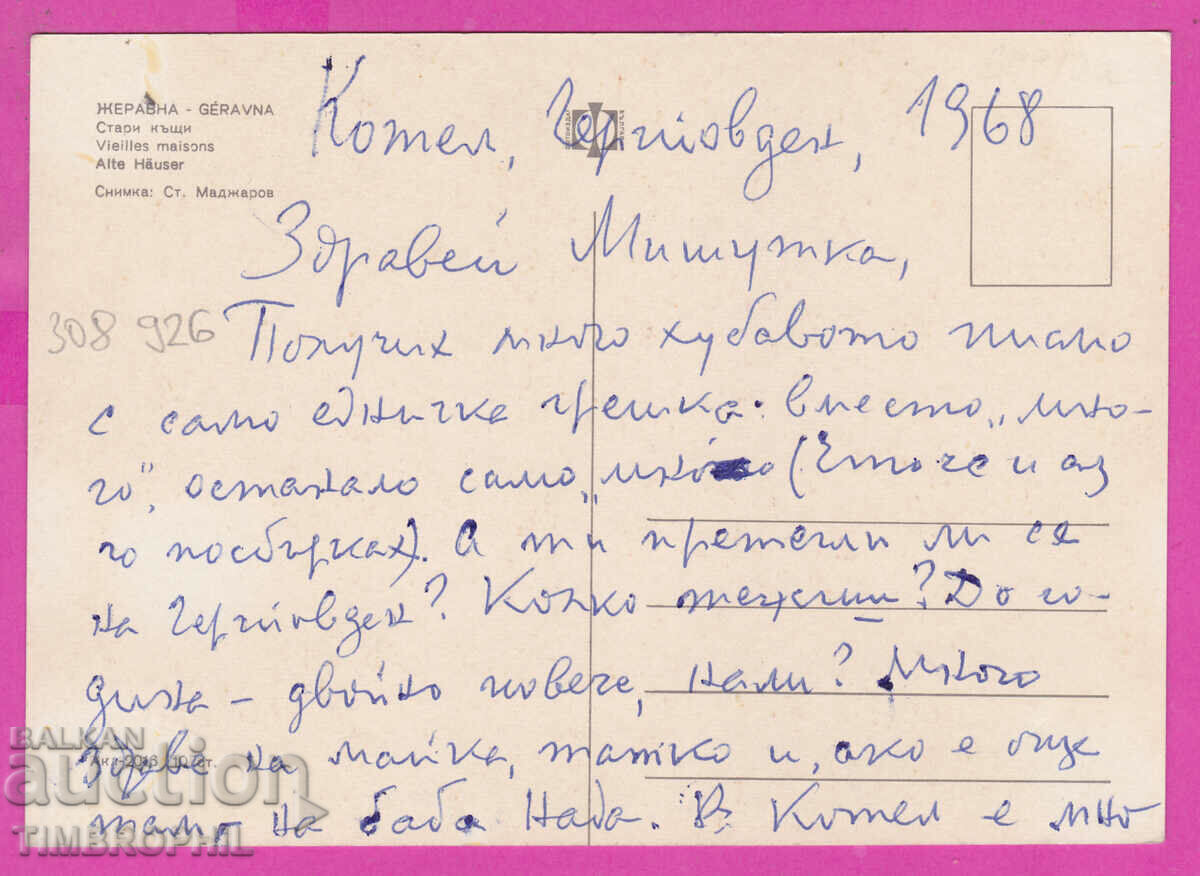 ЖЕРАВНА - GÉRAVNA
Стари къщи
Vieilles maisons
Alte Häuser
Снимка: Ст. Маджаров
Котел, Гергьовден, 1968
Здравей Мишутка,
308 926
Получих много хубавото писмо
с само едничка грешка: вместо „мно-
го", останало само „мно (Ето че и аз
го посбърках). А ти претегли ли се
на Гергьовден? Колко тежиш? До го-
дина - двойно повече, нали? Много
здраве на майка, татко и, ако е още
там - на баба Нада. В Котел е мно
Акл-2013 10 ст.
BALKAN
auction
TIMBROPHIL